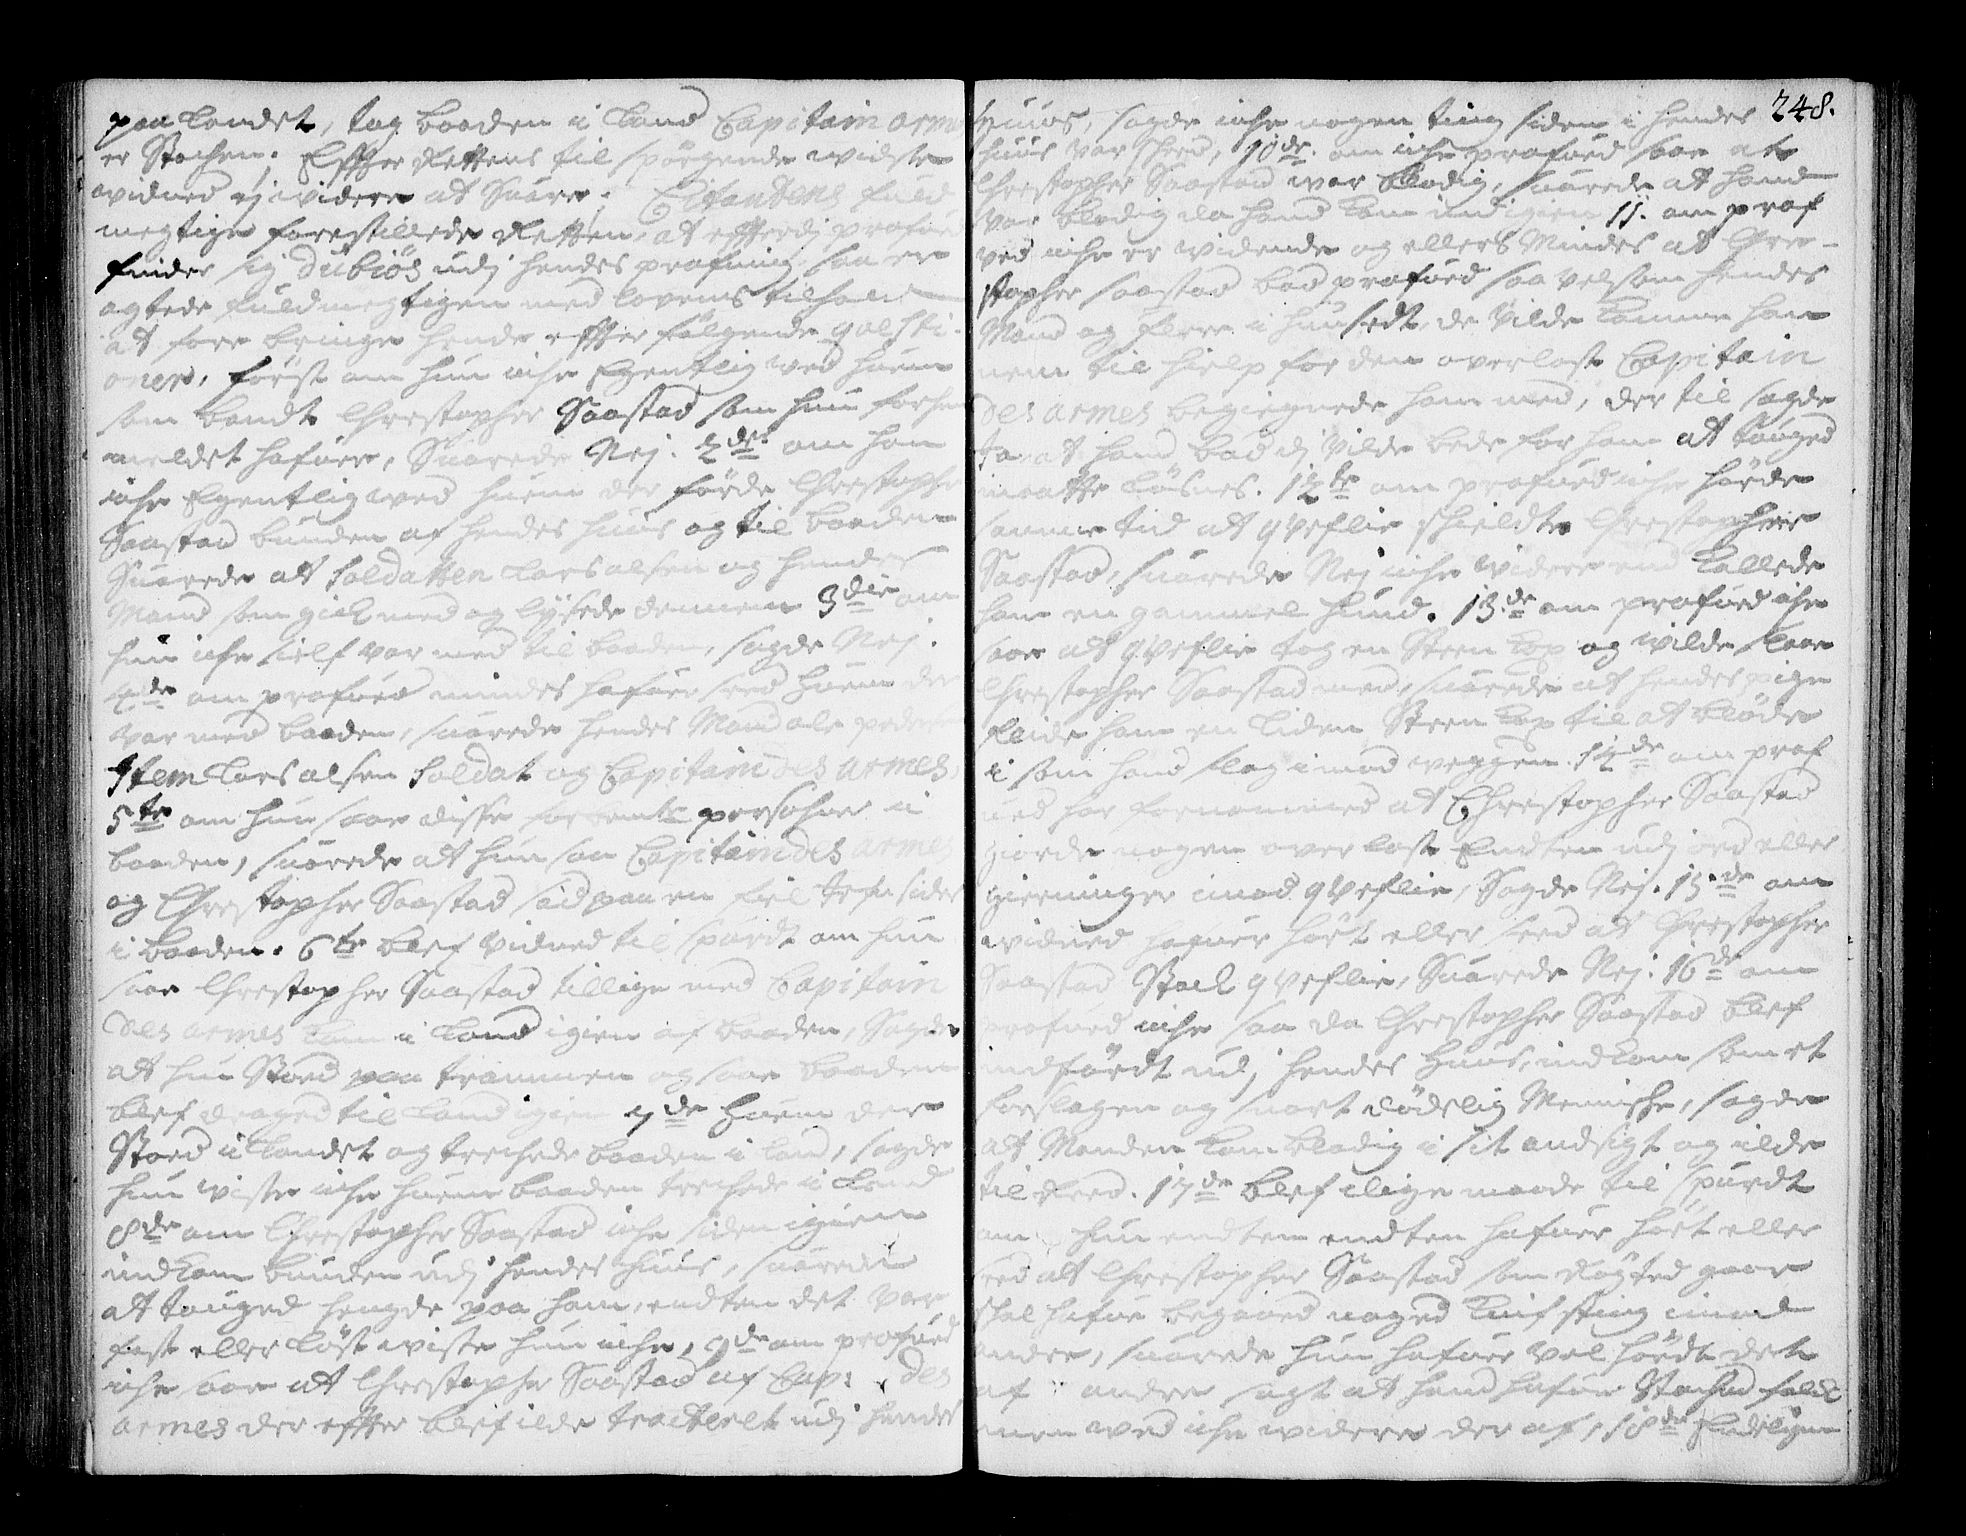 paa Landet, tog baaden i Land Capitain arme
er Stochen; Effter Rettens til spørgende widste
widned ej widere at Suare; Citantens fuld
megtige forestillede Retten, at effterdj profued
finder sig dubiøs udj hendes profning, saa er
agtede fuldmegtigen med lovens tilhold
at fore bringe hende effter følgende qvæsti-
oner, først om hun iche Egentlig ved huem
som bandt Chrestopher Saastad som hun forhen
meldet hafuer, Suarede Nej. 2de. om hun
iche Egentlig ved huem der førde Chrestopher
Saastad bunden af hendes huus og til baaden
Suarede att soldatten Lars olsen og hendes
Mand som gick med og lysede dennem 3die om
hun iche self var med til baaden, sagde Nej.
4de om profued mindes hafuer seed huem der
var med baaden, suarede hendes Mand ole peders
Item Lars olsen soldat og Capitain des armes,
5te om hun saae disse forbente persohner i
baaden, suarede att hun saa Capitain des armes
og Chrestopher Saastad sad paa en fiel tofte sider
i baaden. 6te blef vidned til spurdt om hun
saae Chrestopher Saastad tillige med Capitain
des armes kom i Land igien af baaden, Sagde
att hun stoed paa trammen og saae baaden
blef draged til Land igien 7de huem der
Stoed i Landet og trechede baaden i Land, sagde
hun viste iche huem baaden trechede i Land
8de om Chrestopher Saastad iche siden igien
indkom bunden udj hendes huus, suarede
att touged hengde paa ham, endten det var
fast eller løst viste hun iche, 9de om profued
iche saae att Chrestopher Saastad af Cap: des
armes der effter blef ilde tracteret udj hendes
248.
huus, sagde iche nogen ting siden i hendes
huus var skeed, 10de. om iche profued saae at
Chrestopher Saastad war blodig, suarede att hand
var blodig da hand kom ind igien 11. om prof
ved iche er widende og ellers Mindes at Chre-
stopher Saastad bad profued saa vel som hendes
Mand og flere i huusedt, de vilde komme ham
nem til hielp for den overlast Capitain
des armes begiegnede ham med, der til sagde
Ja at hand bad dj vilde bede for ham att touged
maatte løsnes. 12te om profued iche hørde
samme tid att qveflie skieldte Chrestopher
Saastad, suarede Nej iche widere end kallede
ham en gammel hund. 13de om profued iche
saae att qveflie tog en Steen kop og wilde slaae
Chrestopher Saastad med, suarede at hendes pige
fleide ham en liden Steen kop til at bløde
i som hand slog i mod veggen. 14de om prof
ued har fornommed at Chrestopher Saastad
giorde nogen over last Endten udj ord eller
gierninger imod qveflie, Sagde Nej. 15de om
widned hafuer hørt eller seed att Chrestopher
Saastad Stack qveflie, Suarede Nej. 16de om
profued iche saa da Chrestopher Saastad blef
indførdt udj hendes Huus, indkom som et
forslagen og snart dødelig Menniske, sagde
att Manden kom blodig i sit andsigt og ilde
til reed. 17de blef i lige maade til spurdt
om hun endten endten hafuer hørt eller
seed att Chrestopher Saastad som rögted gaar
skal hafue begaaed noged knif sting imod
andre, suarede hun hafuer vel hørdt det
af andre sagt at hand hafue Stuched folck
men ved iche widere der af, 18de Endeligen